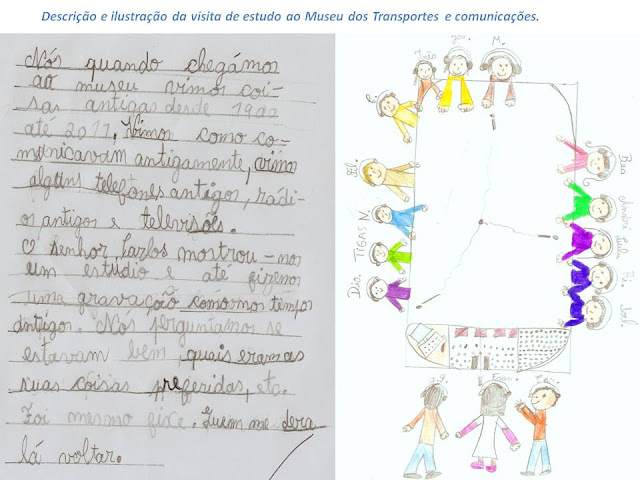 Descrição e ilustração da visita de estudo ao Museu dos Transportes e comunicações.
Nós quando chegámos
ao museu vimos coi-
sas antigas desde 1900
até 2011. Vimos como co-
municavam antigamente, vimo
alguns telefones antigos, rádi-
os antigos e televisões.
O senhor Carlos mostrou-nos
um estúdio e até fizemos
uma gravação como nos tempos
antigos. Nós perguntámos se
estavam bem, quais eram as
suas coisas preferidas, etc.
Foi mesmo fixe. Quem me dera
lá voltar.
Inês
M.
TIGAS M.
Dio.